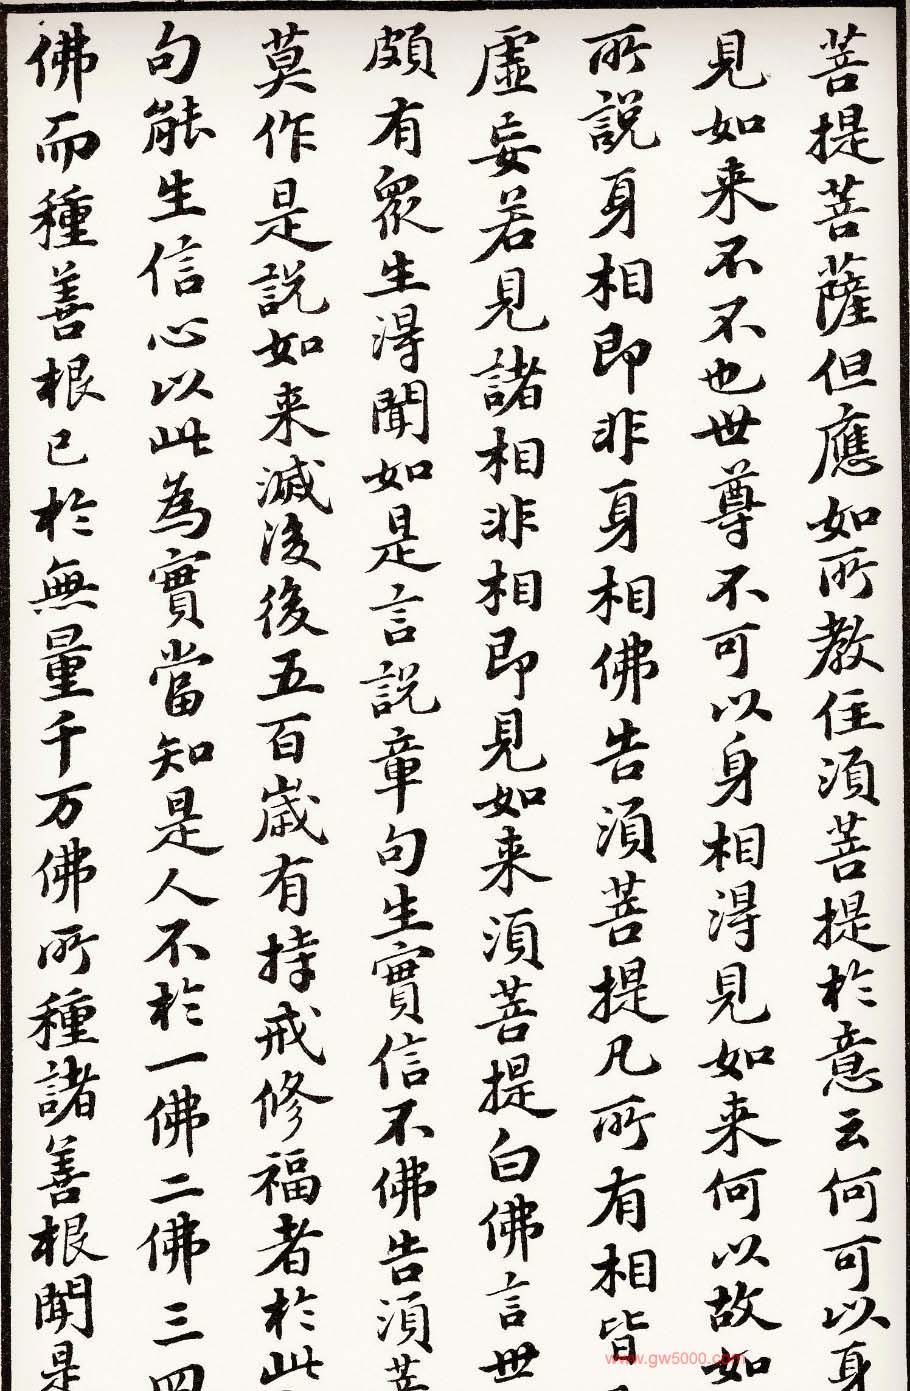 菩提菩薩但應如所教住須菩提於意云何可以身
見如来不不也世尊不可以身相得見如来何以故如
所說身相即非身相佛告須菩提凡所有相皆
虛妄若見諸相非相即見如来須菩提白佛言世
頗有眾生得聞如是言說章句生實信不佛告須菩
莫作是說如来滅後後五百歲有持戒修福者於此
句能生信心以此為實當知是人不於一佛二佛三四
佛而種善根已於無量千万佛所種諸善根聞是
www.gw5000.com